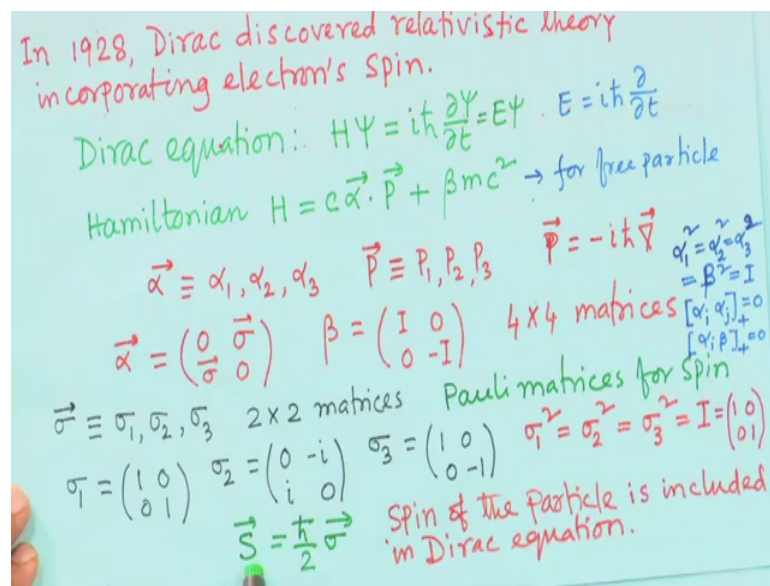 In 1928, Dirac discovered relativistic theory
incorporating electron's spin.
Dirac equation: Hψ = iħ ∂ψ/∂t = Eψ . E = iħ ∂/∂t
Hamiltonian H = c α⃗ · P⃗ + βmc² → for free particle
α⃗ ≡ α₁, α₂, α₃ P⃗ ≡ P₁, P₂, P₃ P⃗ = -iħ ∇⃗
α₁² = α₂² = α₃²
= β² = I
α⃗ = (0 σ⃗ / σ⃗ 0) β = (I 0 / 0 -I) 4x4 matrices
[αᵢ αⱼ]₊ = 0
[αᵢ β]₊ = 0
σ⃗ ≡ σ₁, σ₂, σ₃ 2x2 matrices Pauli matrices for spin
σ₁ = (1 0 / 0 1) σ₂ = (0 -i / i 0) σ₃ = (1 0 / 0 -1) σ₁² = σ₂² = σ₃² = I = (1 0 / 0 1)
S⃗ = ħ/2 σ⃗ Spin of the particle is included
in Dirac equation.